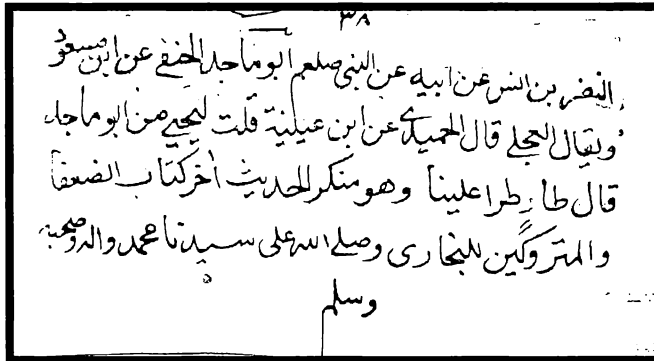 ٣٨
النضر بن انس عن ابيه عن النبى صلعم ابو ماجد الحنفى عن ابن مسعود
ويقال العجلى قال الحميدى عن ابن عيينة قلت ليحيى من ابو ماجد
قال طار طرا علينا وهو منكر الحديث آخر كتاب الضعفا
والمتروكين للبخارى وصلى الله على سيدنا محمد واله وصحبه
وسلم